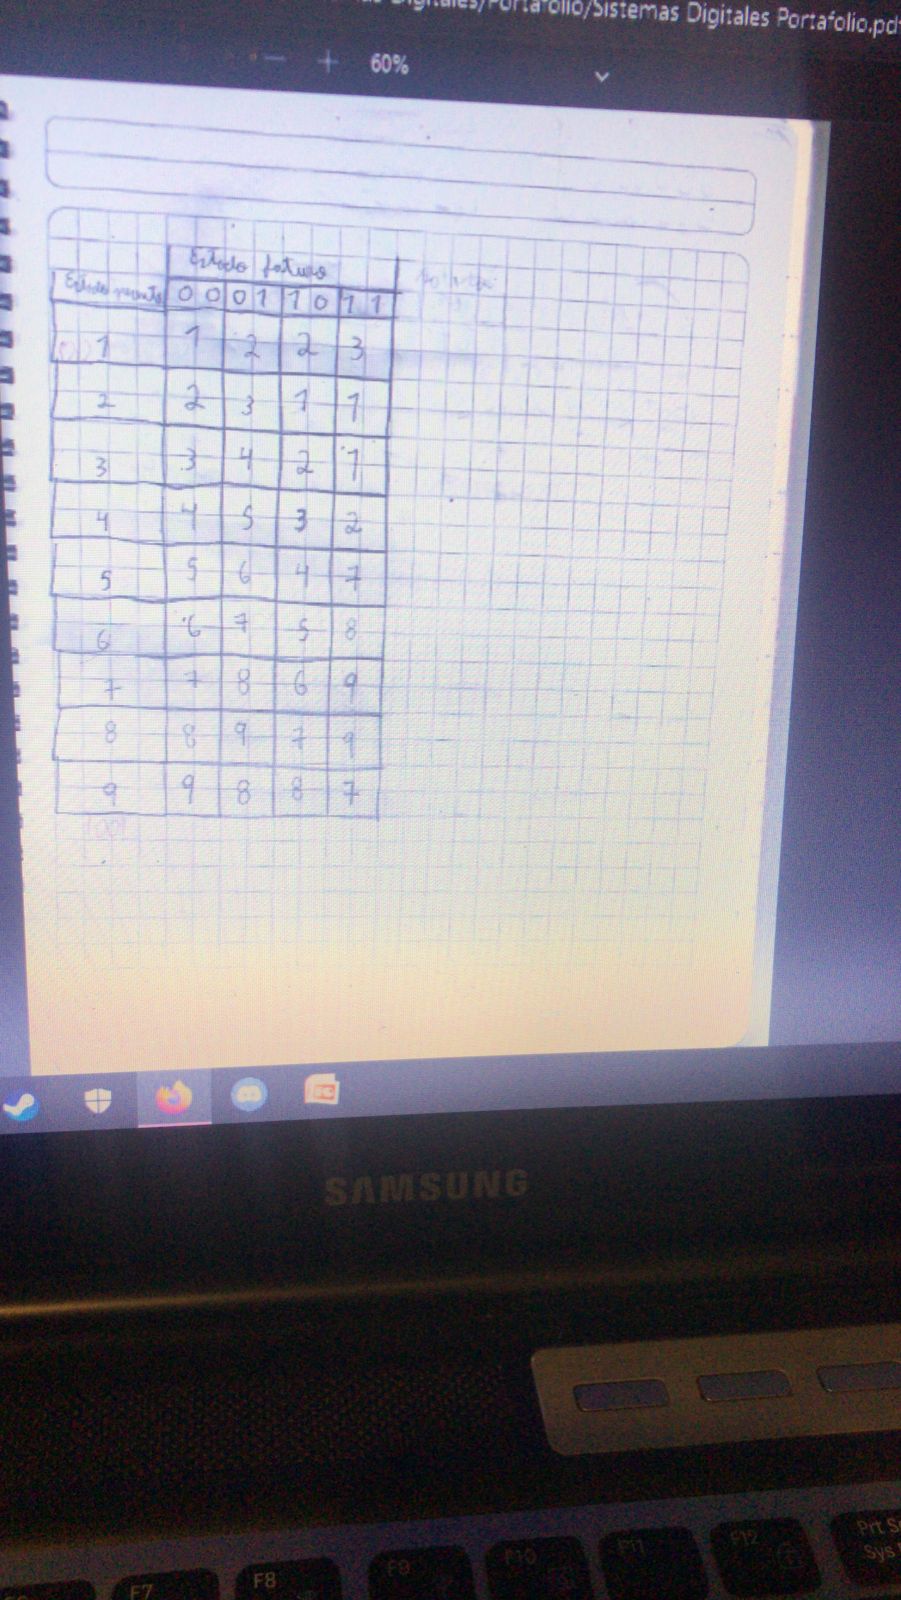 Digitales/Portafolio/Sistemas Digitales Portafolio.pdf
60%
Estado futuro
Estado presente 0 0 0 1 1 0 1 1
1 1 2 2 3
2 2 3 1 1
3 3 4 2 1
4 4 5 3 2
5 5 6 4 7
6 6 7 5 8
7 7 8 6 9
8 8 9 7 9
9 9 8 8 7
SAMSUNG
F7 F8 F9 F10 F11 F12 Prt Sc
Sys